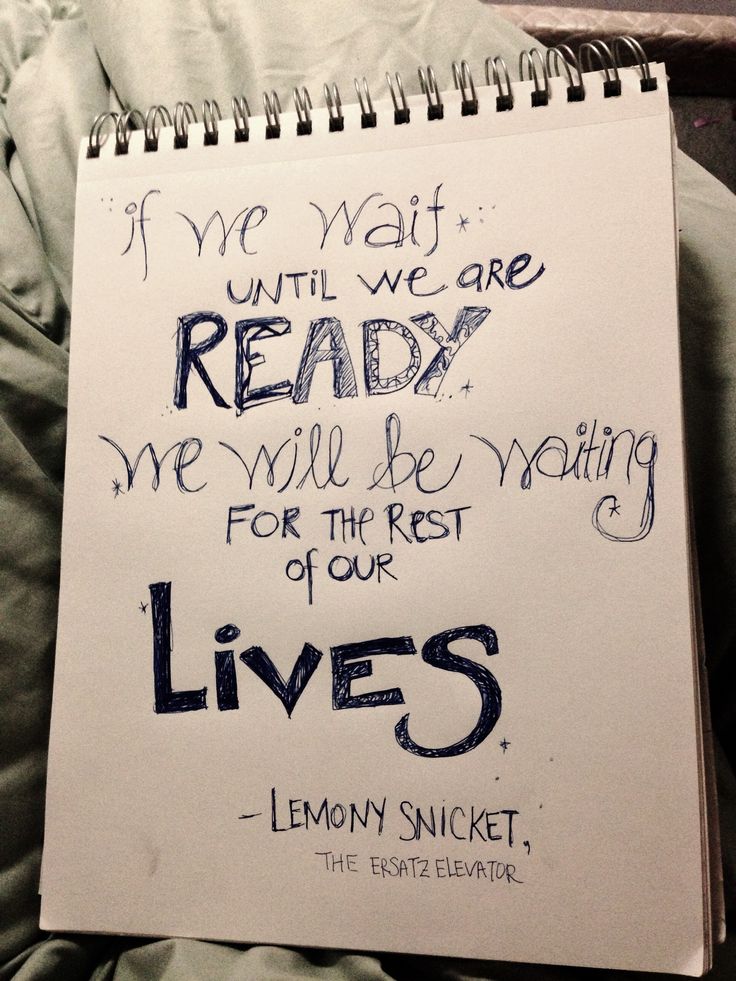 if we wait
UNTiL We ARe
READY
We will be waiting
FOR THe ReST
of OUR
LiVES
- LEMONY SNICKET,
THE ERSATZ ELEVATOR